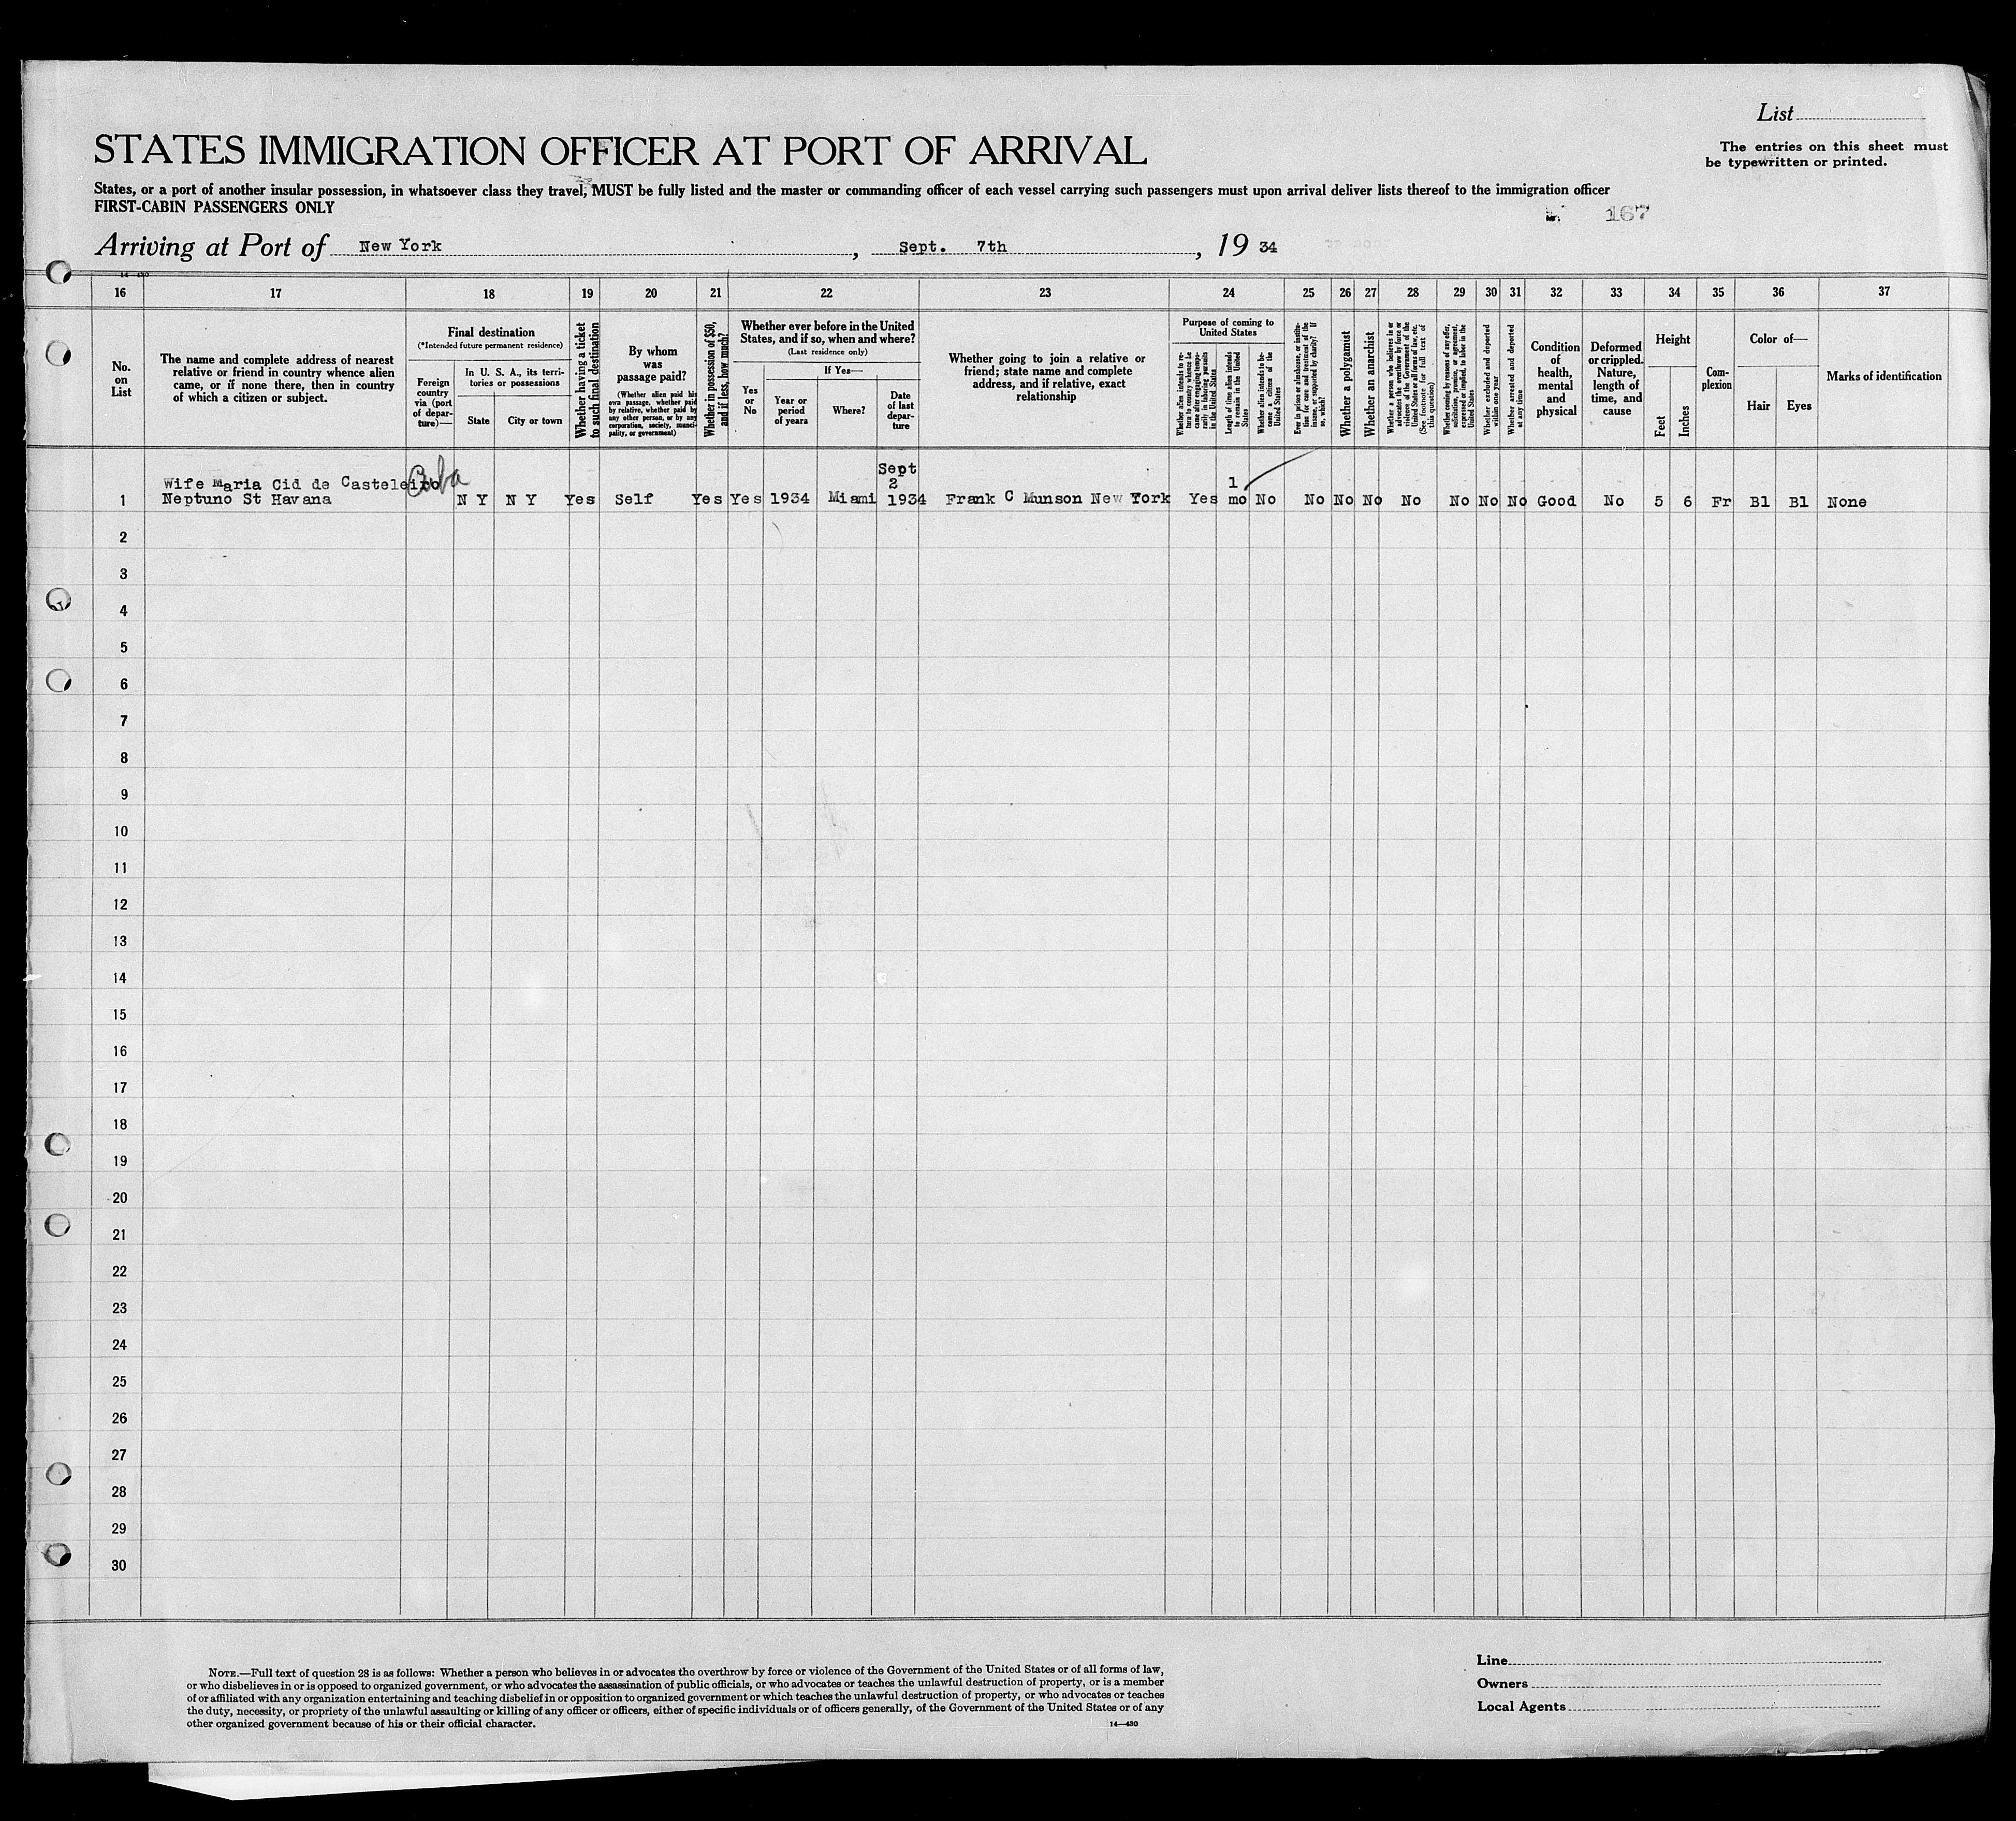 List
STATES IMMIGRATION OFFICER AT PORT OF ARRIVAL
The entries on this sheet must
be typewritten or printed.
States, or a port of another insular possession, in whatsoever class they travel, MUST be fully listed and the master or commanding officer of each vessel carrying such passengers must upon arrival deliver lists thereof to the immigration officer
FIRST-CABIN PASSENGERS ONLY
167
Arriving at Port of New York, Sept. 7th, 19 34
14—430
16 17 18 19 20 21 22 23 24 25 26 27 28 29 30 31 32 33 34 35 36 37
No.
on
List
The name and complete address of nearest
relative or friend in country whence alien
came, or if none there, then in country
of which a citizen or subject.
Final destination
(*Intended future permanent residence)
Foreign
country
via (port
of depar-
ture)—
In U. S. A., its terri-
tories or possessions
State
City or town
Whether having a ticket
to such final destination
By whom
was
passage paid?
(Whether alien paid his
own passage, whether paid
by relative, whether paid by
any other person, or by any
corporation, society, munici-
pality, or government)
Whether in possession of $50,
and if less, how much?
Whether ever before in the United
States, and if so, when and where?
(Last residence only)
Yes
or
No
If Yes—
Year or
period
of years
Where?
Date
of last
depar-
ture
Whether going to join a relative or
friend; state name and complete
address, and if relative, exact
relationship
Purpose of coming to
United States
Whether alien intends to re-
turn to country whence he
came after engaging tempo-
rarily in laboring pursuits
in the United States
Length of time alien intends
to remain in the United
States
Whether alien intends to be-
come a citizen of the
United States
Ever in prison or almshouse, or institu-
tion for care and treatment of the
insane, or supported by charity? If
so, which?
Whether a polygamist
Whether an anarchist
Whether a person who believes in or
advocates the overthrow by force or
violence of the Government of the
United States or all forms of law, etc.
(See footnote for full text of
this question)
Whether coming by reason of any offer,
solicitation, promise, or agreement,
expressed or implied, to labor in the
United States
Whether excluded and deported
within one year
Whether arrested and deported
at any time
Condition
of
health,
mental
and
physical
Deformed
or crippled.
Nature,
length of
time, and
cause
Height
Feet
Inches
Com-
plexion
Color of—
Hair
Eyes
Marks of identification
Wife Maria Cid de Casteleiro Cuba Sept
2 1
1 Neptuno St Havana N Y N Y Yes Self Yes Yes 1934 Miami 1934 Frank C Munson New York Yes mo No No No No No No No No Good No 5 6 Fr Bl Bl None
2
3
4
5
6
7
8
9
10
11
12
13
14
15
16
17
18
19
20
21
22
23
24
25
26
27
28
29
30
NOTE.—Full text of question 28 is as follows: Whether a person who believes in or advocates the overthrow by force or violence of the Government of the United States or of all forms of law,
or who disbelieves in or is opposed to organized government, or who advocates the assassination of public officials, or who advocates or teaches the unlawful destruction of property, or is a member
of or affiliated with any organization entertaining and teaching disbelief in or opposition to organized government or which teaches the unlawful destruction of property, or who advocates or teaches
the duty, necessity, or propriety of the unlawful assaulting or killing of any officer or officers, either of specific individuals or of officers generally, of the Government of the United States or of any
other organized government because of his or their official character.
14—430
Line
Owners
Local Agents